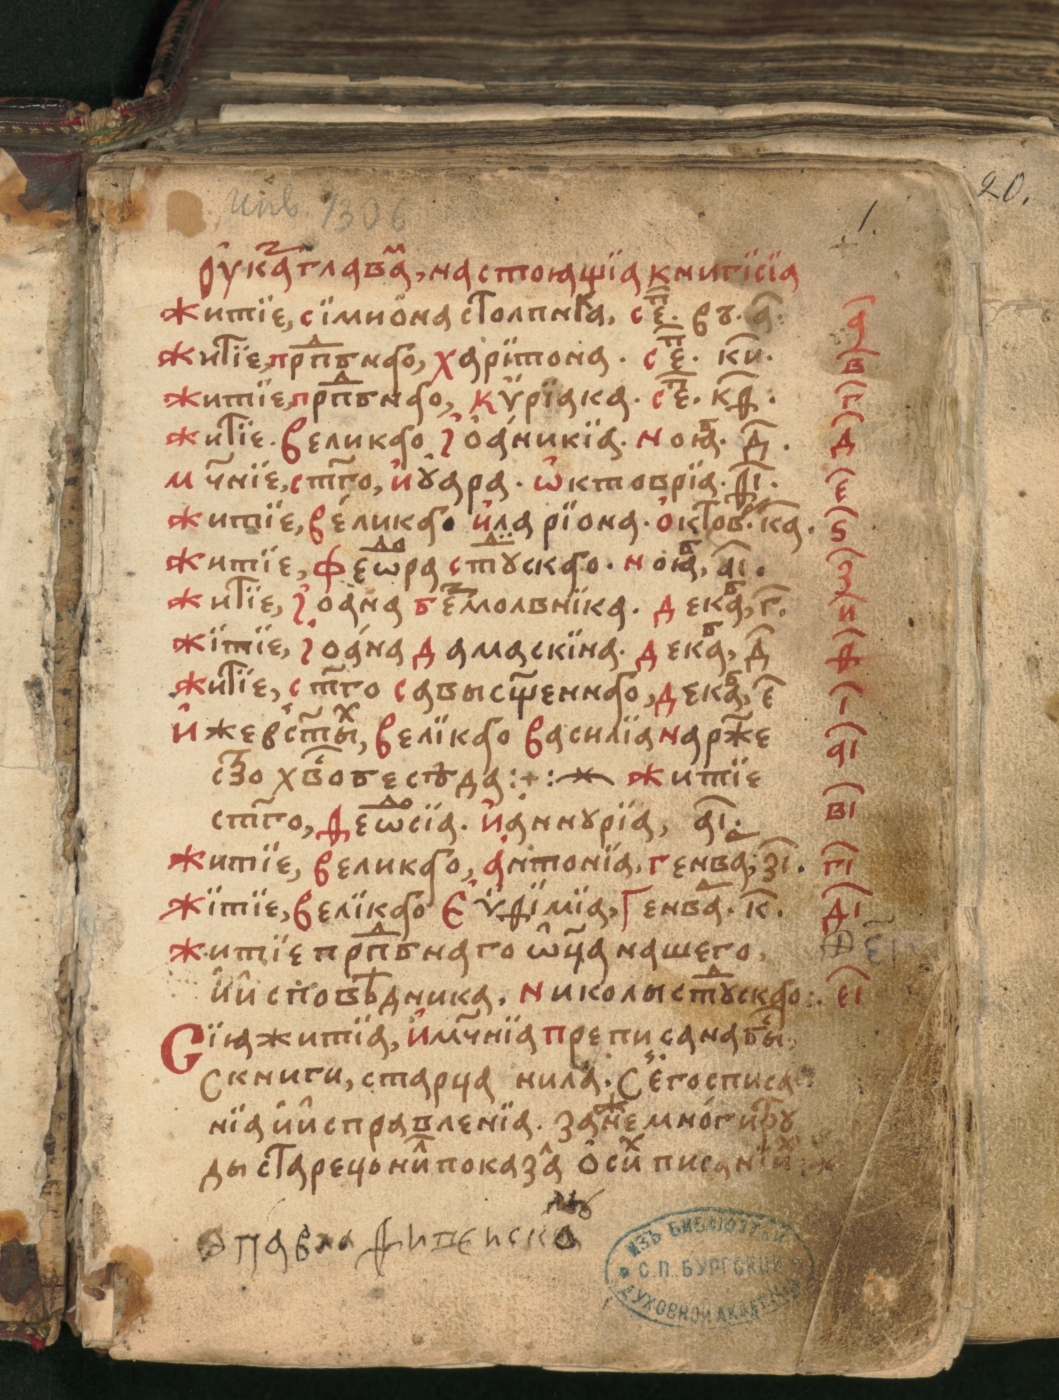 инв. 1306
20.
1.
ѹка҇ глава҇, настоѧщїа книгїсїа
житїе, сїмиѡна столпника, се҇п. ву. а҃. а҃
житїе, прпⷣбнаго, харїтона. се҇п. к҃и. в҃
житїе, прпⷣбнаго, кѷрїака. се҇п. к҃ѳ. г҃
житїе. великаго іѡанникїа. ноѧ҇б. д҃. д҃
мч҃нїе, ст҃го, и ѹара. ѡктоврїа. ѳ҃і. е҃
житїе, великаго иларїона. октоⷡ. к҃а. ѕ҃
житїе, феⷣѡра стⷣускаго. ноѧ҇б, а҃і. з҃
житїе, іоана беⷥмолвнїка. декаⷡ, г҃. и҃
жїтїе, іоана дамаскїна. декаⷡ, д҃ ѳ҃
житїе, ст҃го савы сщ҃еннаго, декаⷡ, е҃ і҃
иже въ ст҃ыⷯ, велїкаго василїа нарⷤе а҃і
с҃зо хв҃о беседа :+: житїе
ст҃го, ѳеⷣѡсїа. ианнурїа, а҃і. в҃і
житїе, великаго, антонїа, генва; з҃і. г҃і
жїтїе, велїкаго еѵѳїмїа, генваⷬ. к҃. д҃і
житїе прпⷣбнаго ѡц҃а нашего,
и исповѣдника, николы стⷣускаго :. е҃і
Сїѧ житїа, и мч҃нїа преписана бы҇,
с книги, старца нила. Сего списа
нїа и исправленїа. занеⷤ мног и трⷹ
ды старець ниⷧ показа, ѡ сиⷯ писанїи
павла
ИЗЪ БИБЛІОТЕКИ С.П. БУРГСКОЙ ДУХОВНОЙ АКАДЕМІИ